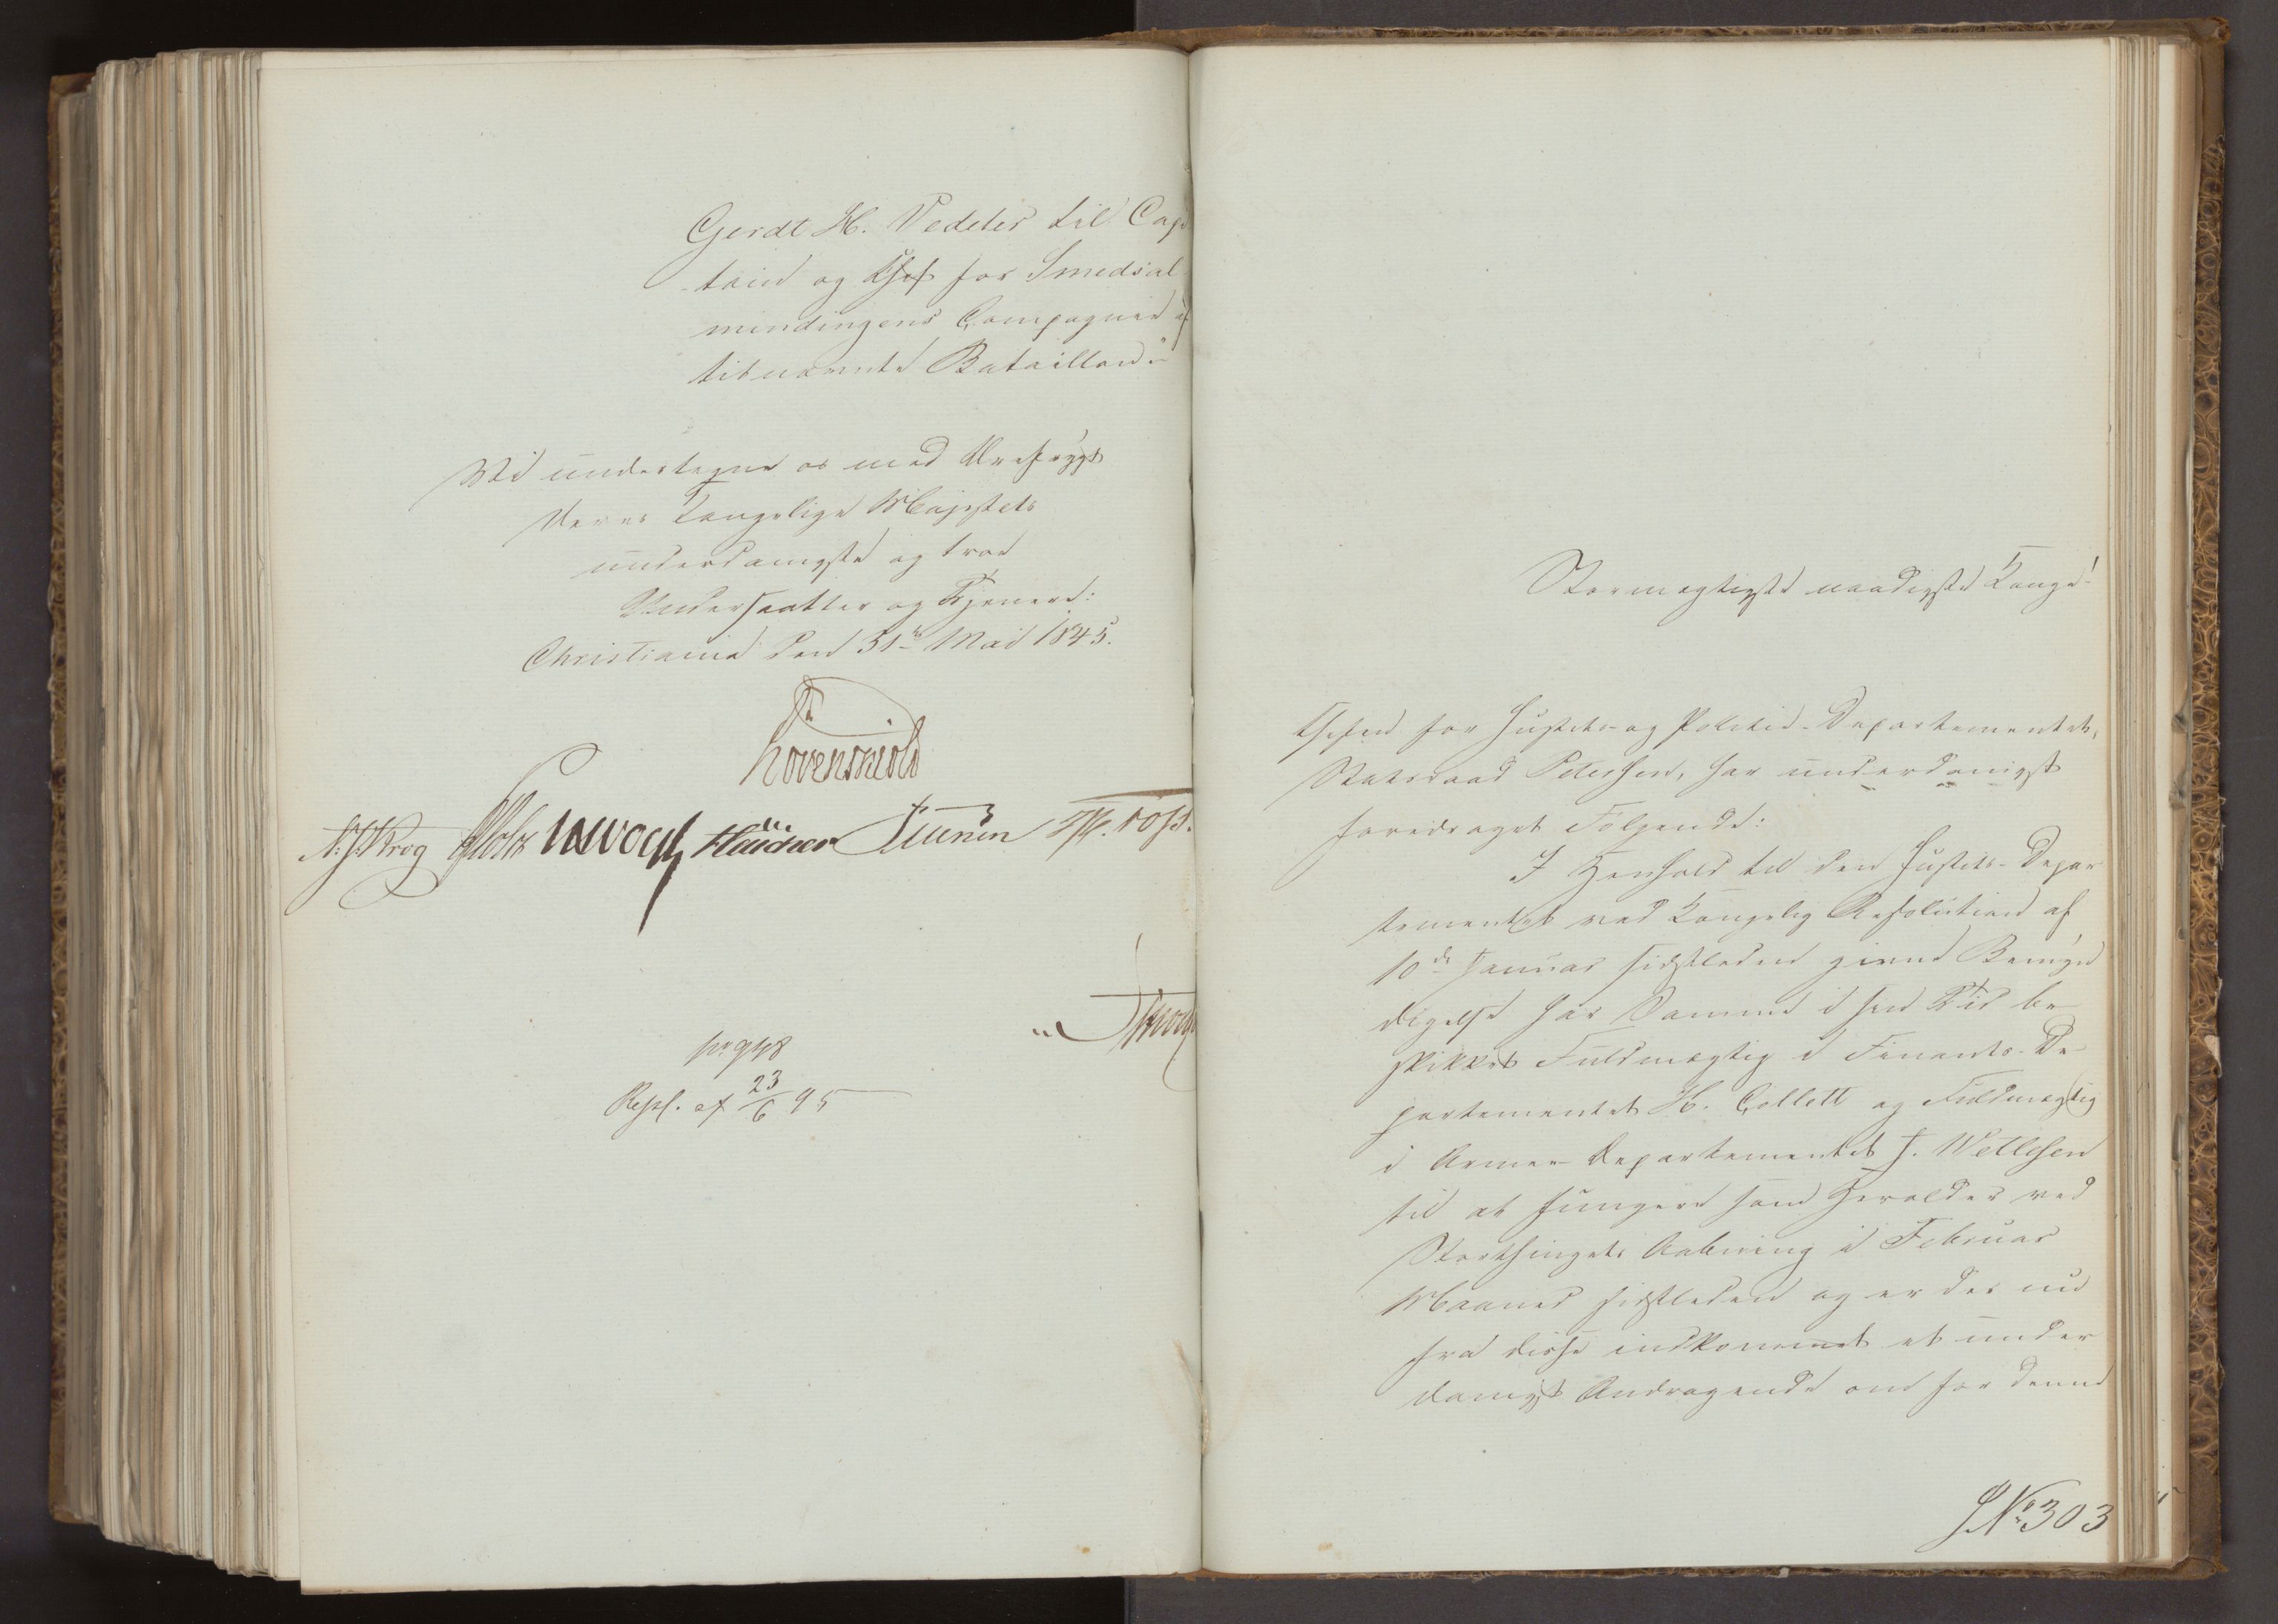 Gerdt H. Vedeler til Cap
tain og Chef for Smedsal
mindingens Compagnie af
tilnævnte Bataillon."
Vi undertegne os med Ærefrygt
Deres Kongelige Majestets
underdanigste og troe
Undersaatter og Tjenere:
Christiania den 31te Mai 1845.
Løvenskiold
N. J. Krog Holst JHVogt
No 948
Resol. af 23/6 45
Stormægtigste naadigste Konge!
Chefen for Justits- og Politie-Departementet,
Statsraad Petersen, har underdanigst
foredraget Følgende:
I Henhold til den Justits-Depar
tementet ved Kongelig Resolution af
10de Januar sidstleden givne Bemyn
digelse har Samme i sin Tid be-
skikket Fuldmægtig i Finants-De-
partementet H. Collett og Fuldmægtig
i Armee-Departementet J. Wellesen
til at fungere som Herolder ved
Storthingets Aabning i Februar
Maaned sidstleden og er der nu
fra disse indkommet et under
danigst Andragende om for denne
JNo 303